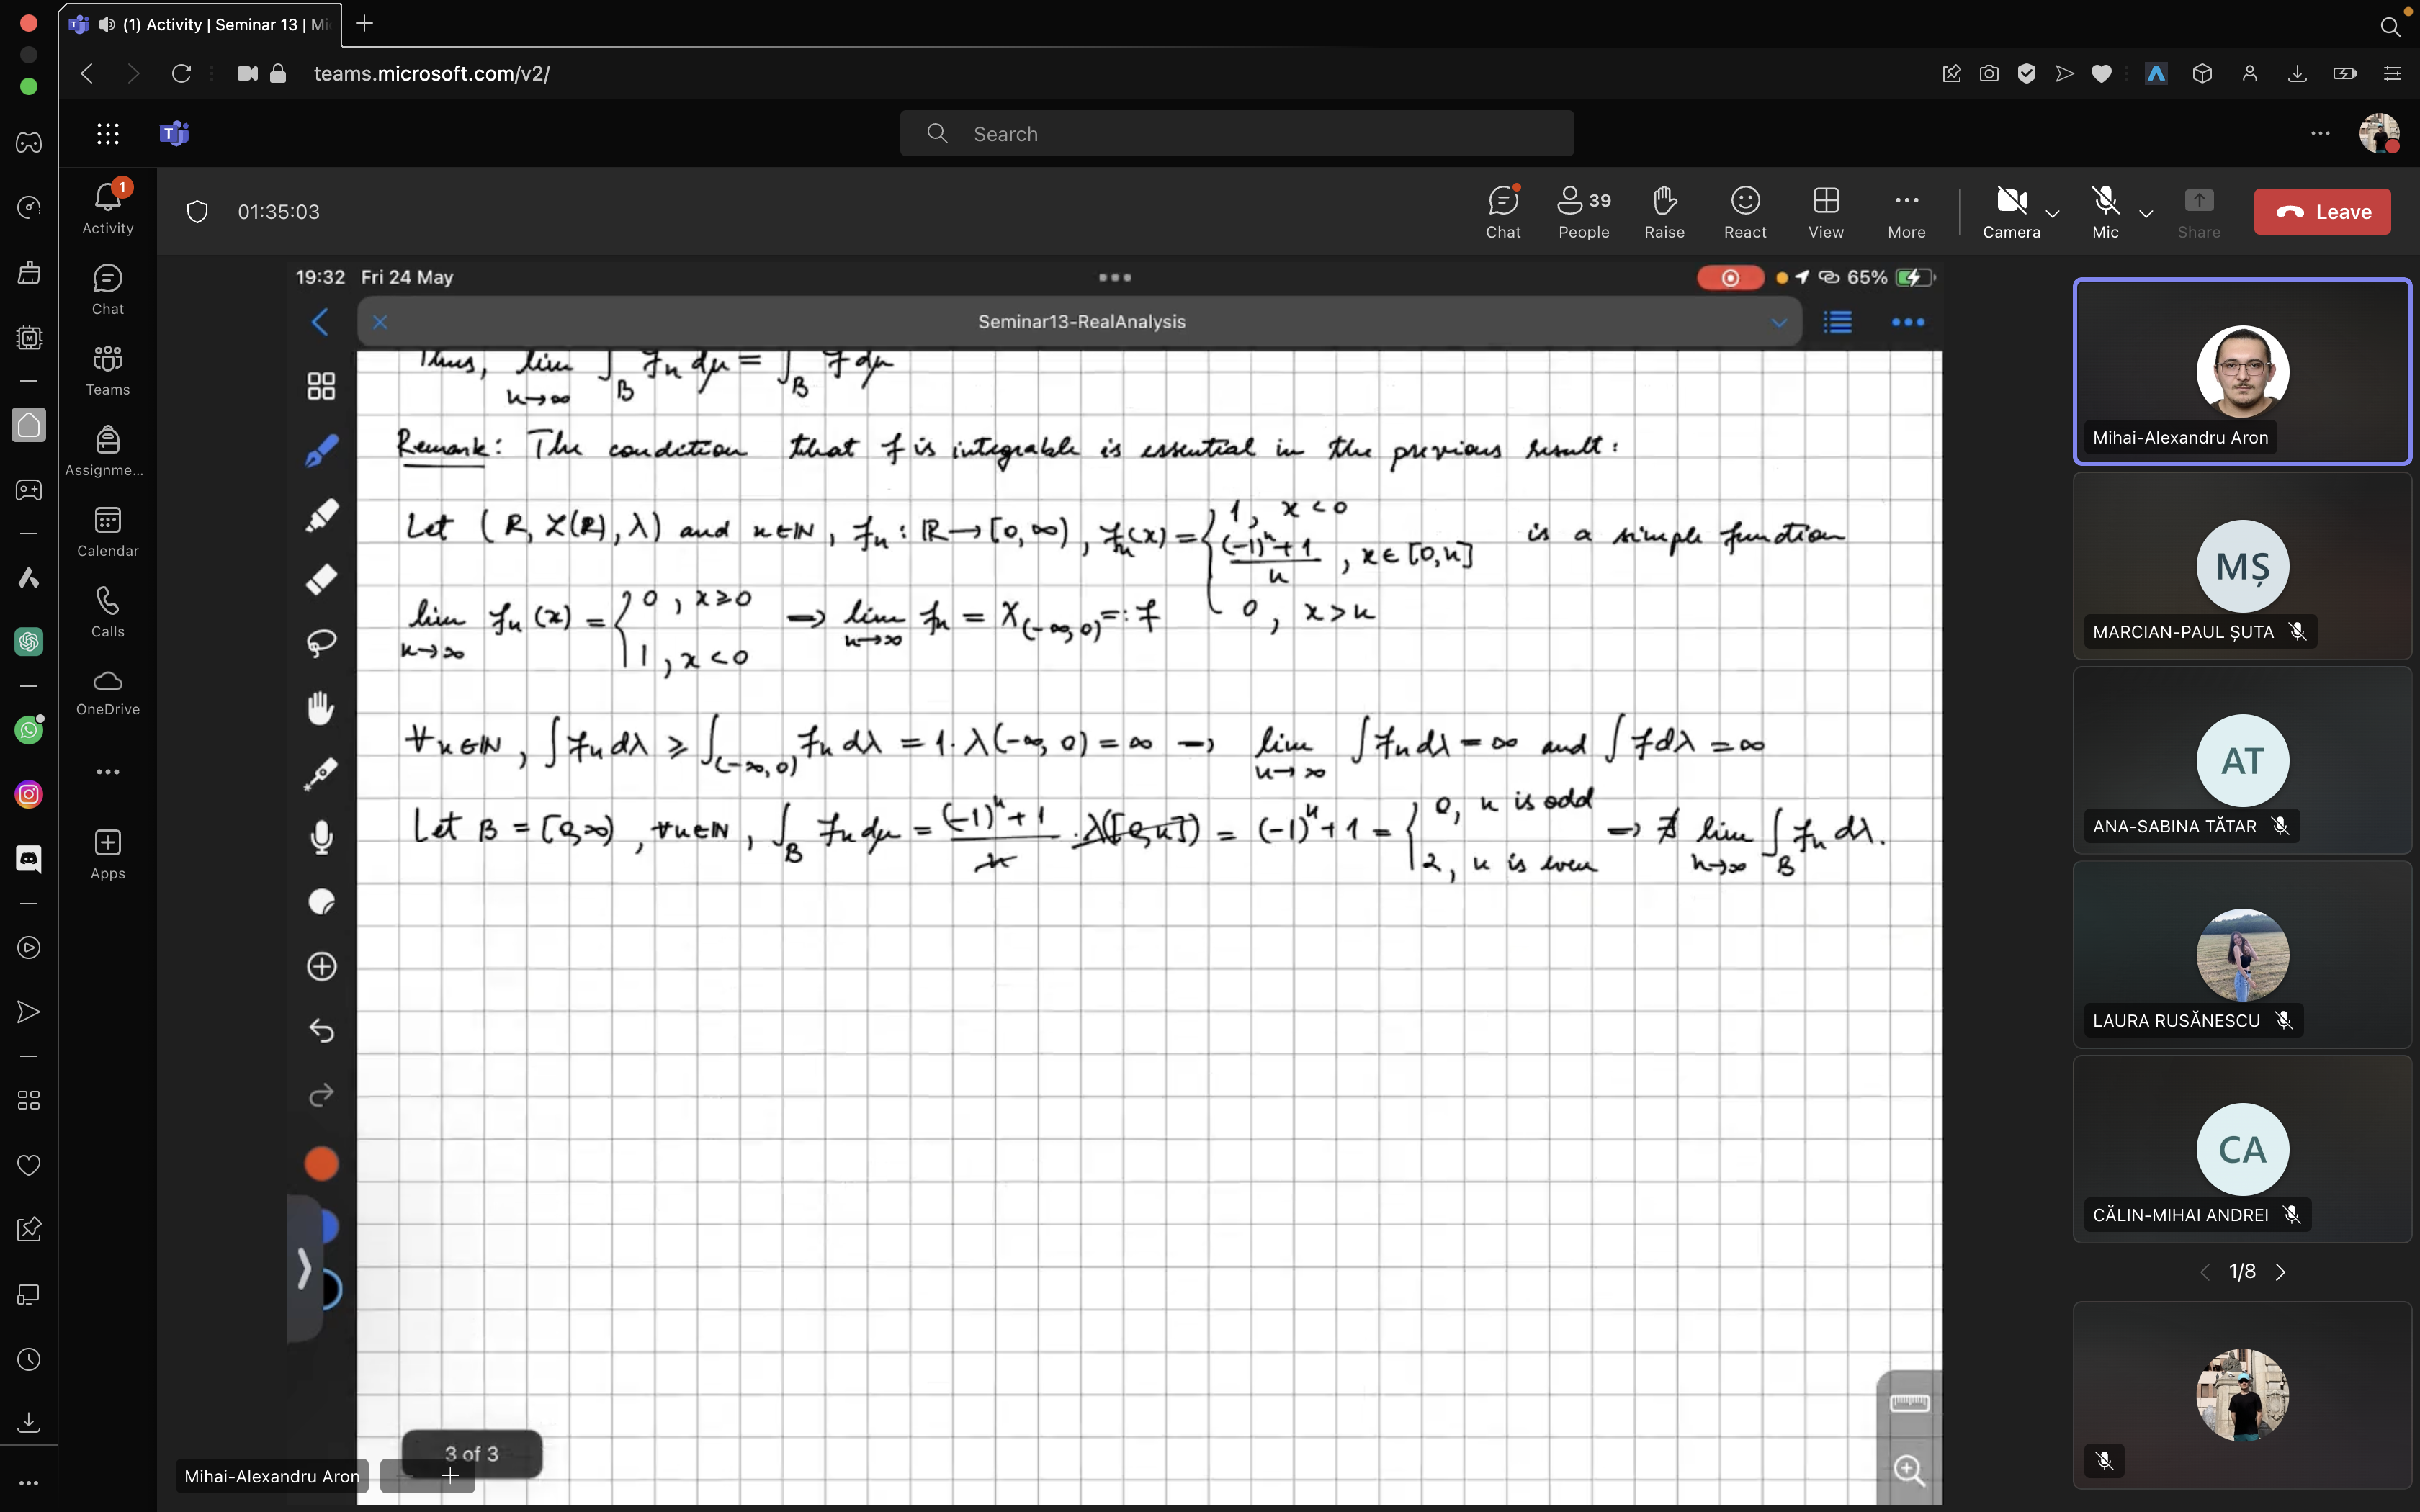 (1) Activity | Seminar 13 | Mi
teams.microsoft.com/v2/
Search
01:35:03
Chat
39
People
Raise
React
View
More
Camera
Mic
Share
Leave
1
Activity
Chat
Teams
Assignme...
Calendar
Calls
OneDrive
Apps
19:32 Fri 24 May
65%
Seminar13-RealAnalysis
Thus, lim n→∞ ∫_B f_n dμ = ∫_B f dμ
Remark: The condition that f is integrable is essential in the previous result:
Let (R, L(R), λ) and n∈ℕ, f_n: ℝ→[0,∞), f_n(x) = { 1, x<0 ; ((-1)^n+1)/n, x∈[0,n] ; 0, x>n is a simple function
lim n→∞ f_n(x) = { 0, x≥0 ; 1, x<0 ⇒ lim n→∞ f_n = χ_(-∞,0) =: f
∀n∈ℕ, ∫f_n dλ ≥ ∫_(-∞,0) f_n dλ = 1·λ(-∞,0) = ∞ ⇒ lim n→∞ ∫f_n dλ = ∞ and ∫f dλ = ∞
Let B = [0,∞), ∀n∈ℕ, ∫_B f_n dμ = ((-1)^n+1)/n · λ([0,n]) = (-1)^n+1 = { 0, n is odd ; 2, n is even ⇒ ∄ lim n→∞ ∫_B f_n dλ.
3 of 3
Mihai-Alexandru Aron
Mihai-Alexandru Aron
MȘ
MARCIAN-PAUL ȘUTA
AT
ANA-SABINA TĂTAR
LAURA RUSĂNESCU
CA
CĂLIN-MIHAI ANDREI
1/8